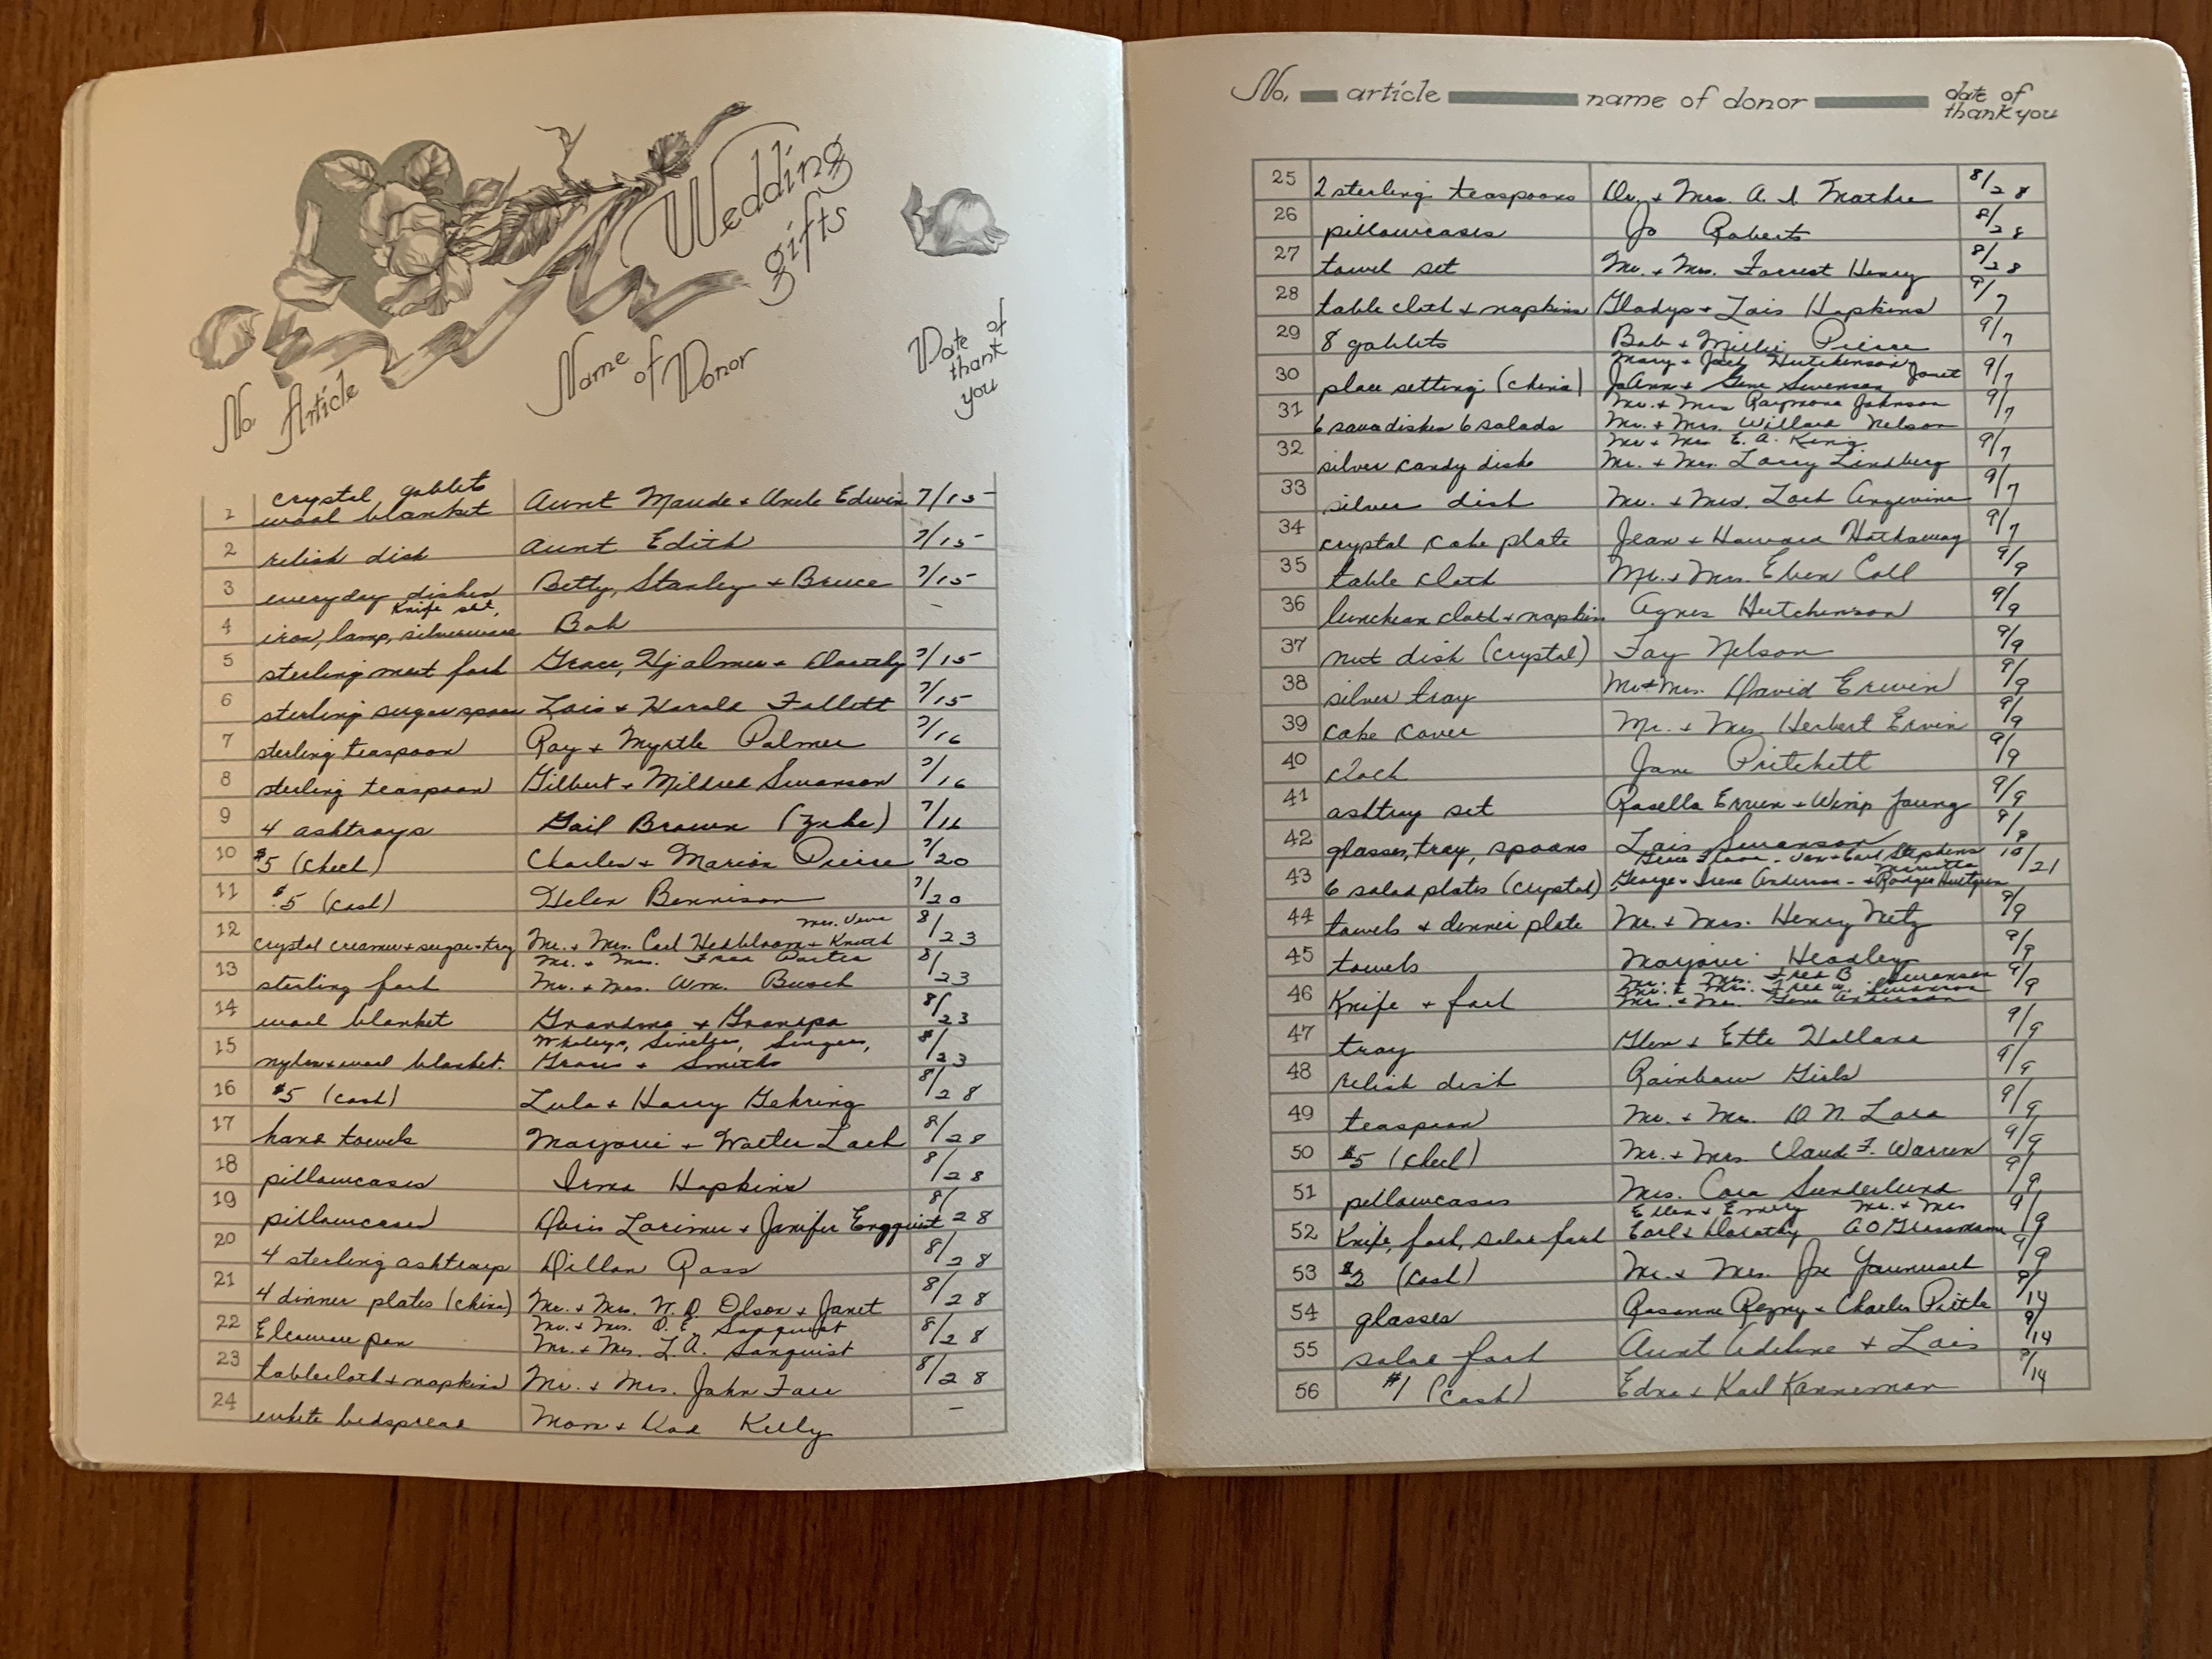 Wedding gifts
No. Article Name of Donor Date of thank you
1 crystal goblets wool blanket Aunt Maude + Uncle Edwin 7/15
2 relish dish Aunt Edith 7/15
3 everyday dishes Betty, Stanley + Bruce 7/15
4 iron, lamp, silverware Knife set, Bob -
5 sterling meat fork Grace, Hjalmer + 7/15
6 sterling sugar spoon Lois + Harold Follett 7/15
7 sterling teaspoon Ray + Myrtle Palmer 7/16
8 sterling teaspoon Gilbert + Mildred Swanson 7/16
9 4 ashtrays Gail Brown (Zeke) 7/16
10 $5 (check) Charles + Marion Pierce 7/20
11 $5 (cash) Helen Bennison 7/20
12 crystal creamer + sugar + tray Mr. + Mrs. Carl Hedbloom + Mrs. 8/23
13 sterling fork Mr. + Mrs. Fred Mr. + Mrs. Wm. Busch 8/23
14 wool blanket Grandma + Grandpa 8/23
15 nylon + wool blanket. Whaleys, Singers, + Smiths 8/23
16 $5 (cash) Lula + Harry Gehring 8/28
17 hand towels Marjorie + Walter Lack 8/28
18 pillowcases Irma Hopkins 8/28
19 pillowcases Doris Lorimer + Jenifer Engquist 8/28
20 4 sterling ashtrays Dillon Ross 8/28
21 4 dinner plates (china) Mr. + Mrs. W. D. Olson + Janet 8/28
22 pan Mr. + Mrs. O. E. Sanquist Mr. + Mrs. L. A. Sanquist 8/28
23 tablecloth + napkins Mr. + Mrs. John Farr 8/28
24 white bedspread Mom + Dad Kelly -
No. article name of donor date of thank you
25 2 sterling teaspoons Dr. + Mrs. A. I. Mathre 8/28
26 pillowcases Jo Roberts 8/28
27 towel set Mr. + Mrs. Forrest Henry 8/28
28 table cloth + napkins Gladys + Lois Hopkins 9/7
29 8 goblets Bob + Millie Pierce 9/7
30 place setting (china) Mary + Jack Hutchinson Janet JoAnn + Gene Swenson 9/7
31 6 6 salads Mr. + Mrs Raymond Johnson Mr. + Mrs. Willard Nelson 9/7
32 silver candy dish Mr + Mrs E. A. King Mr. + Mrs. Larry Lindberg 9/7
33 silver dish Mr. + Mrs. Zach Angevine 9/7
34 crystal cake plate Jean + Howard Hathaway 9/7
35 table cloth Mr. + Mrs. Eben Coll 9/9
36 luncheon cloth + napkins Agnes Hutchinson 9/9
37 nut dish (crystal) Fay Nelson 9/9
38 silver tray Mr + Mrs. David Erwin 9/9
39 cake cover Mr. + Mrs. Herbert Ervin 9/9
40 clock Jane Pritchett 9/9
41 ashtray set Rosella Erwin + Winip Young 9/9
42 glasses, tray, spoons Lois Swanson 9/9
43 6 salad plates (crystal) Carl Stephens George + Irene Anderson - Marietta + Rodger Hultgren 10/21
44 towels + dinner plate Mr. + Mrs. Henry Netz 9/9
45 towels Marjorie Headley 9/9
46 Knife + fork Mr. + Mrs. Fred B. Swanson Mr. + Mrs. Fred W. Swanson Mr. + Mrs. Gene Anderson 9/9
47 tray Glen + Etta Holland 9/9
48 relish dish Rainbow Girls 9/9
49 teaspoon Mr. + Mrs. D. N. 9/9
50 $5 (check) Mr. + Mrs. Claud F. Warren 9/9
51 pillowcases Mrs. Cora Sunderlund 9/9
52 Knife, fork, salad fork Ellen + Emery Mr. + Mrs Earl + Dorothy A O 9/9
53 $2 (cash) Mr. + Mrs. Joe 9/9
54 glasses Rosanne + Charles 9/14
55 salad fork Aunt Adeline + Lois 9/14
56 $1 (cash) Edna + Karl Kanneman 9/14